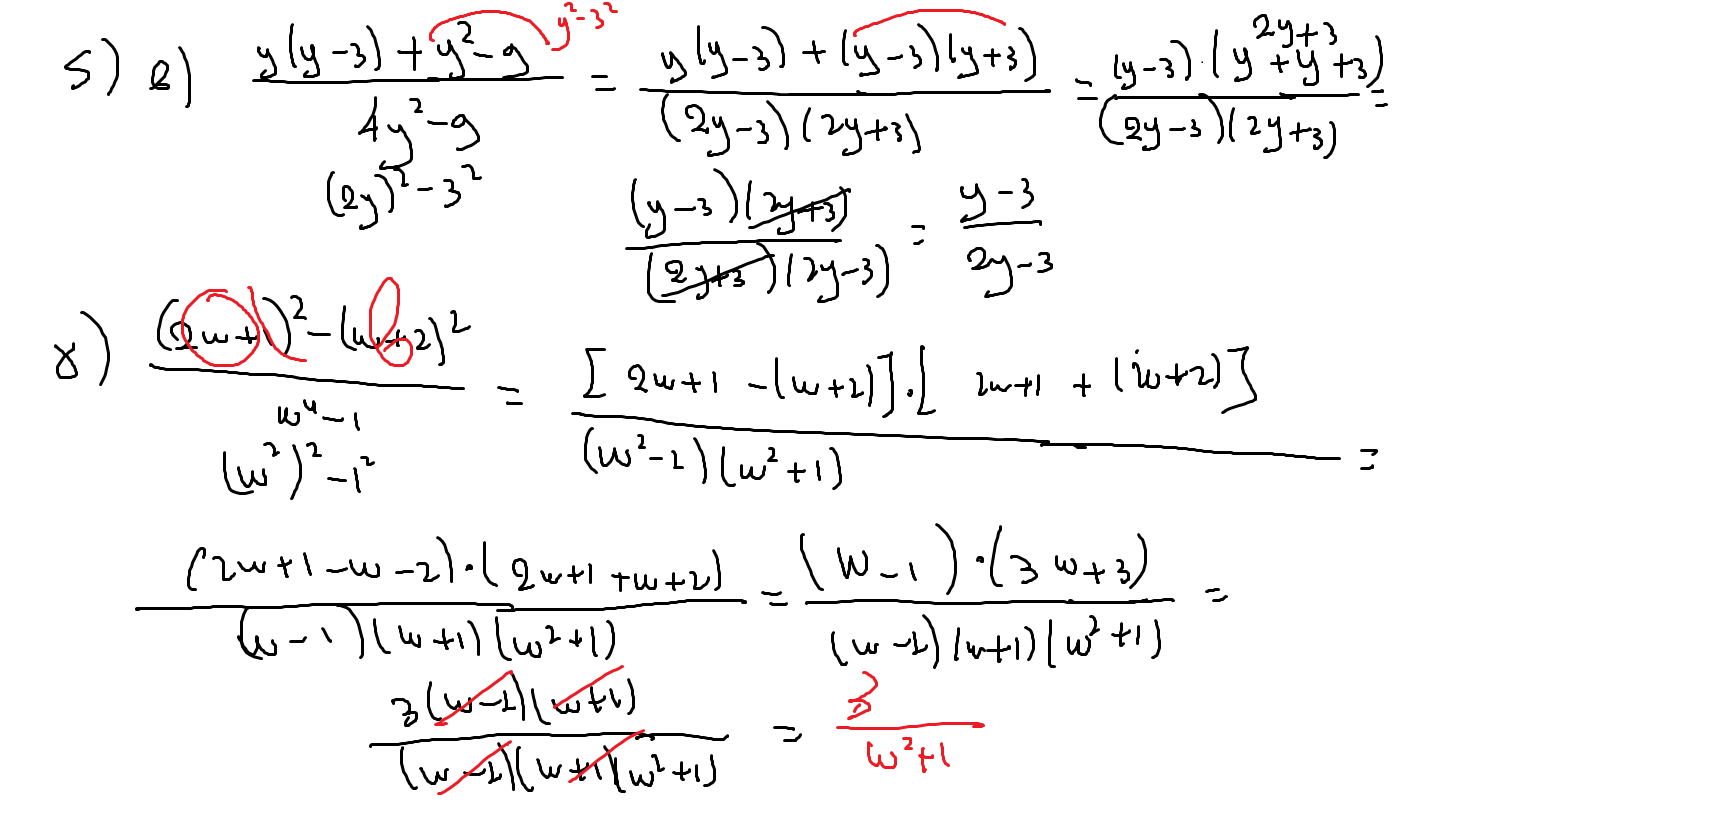 5) β) (y(y-3)+y²-9)/(4y²-9) = (y(y-3)+(y-3)(y+3))/((2y-3)(2y+3)) = ((y-3)·(y+y+3))/((2y-3)(2y+3)) =
y²-3²
2y+3
(2y)²-3²
((y-3)(2y+3))/((2y+3)(2y-3)) = (y-3)/(2y-3)
γ) ((2w+1)²-(w+2)²)/(w⁴-1) = ([2w+1-(w+2)]·[2w+1+(w+2)])/((w²-1)(w²+1)) =
(w²)²-1²
((2w+1-w-2)·(2w+1+w+2))/((w-1)(w+1)(w²+1)) = ((w-1)·(3w+3))/((w-1)(w+1)(w²+1)) =
(3(w-1)(w+1))/((w-1)(w+1)(w²+1)) = 3/(w²+1)